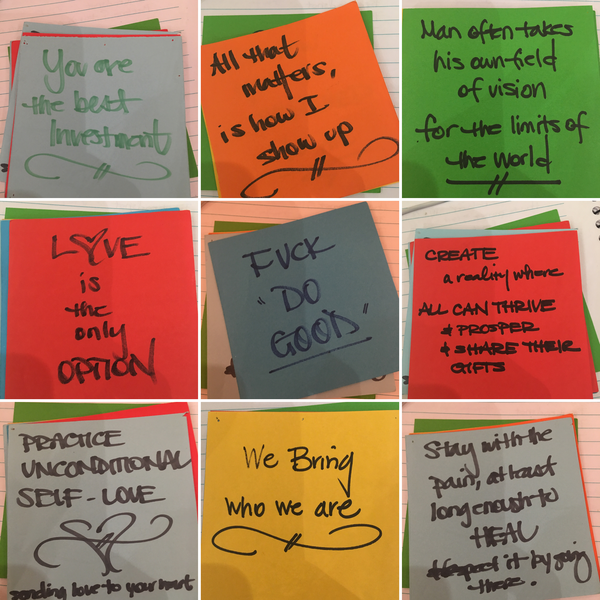 You are
the best
Investment
All that
matters,
is how I
show up
Man often takes
his own field
of vision
for the limits of
the world
LOVE
is
the
only
OPTION
FUCK
"DO
GOOD"
CREATE
a reality where
ALL CAN THRIVE
& PROSPER
& SHARE THEIR
GIFTS
PRACTICE
UNCONDITIONAL
SELF-LOVE
sending love to your heart
We Bring
who we are
Stay with the
pain, at least
long enough to
HEAL
it by going
there.